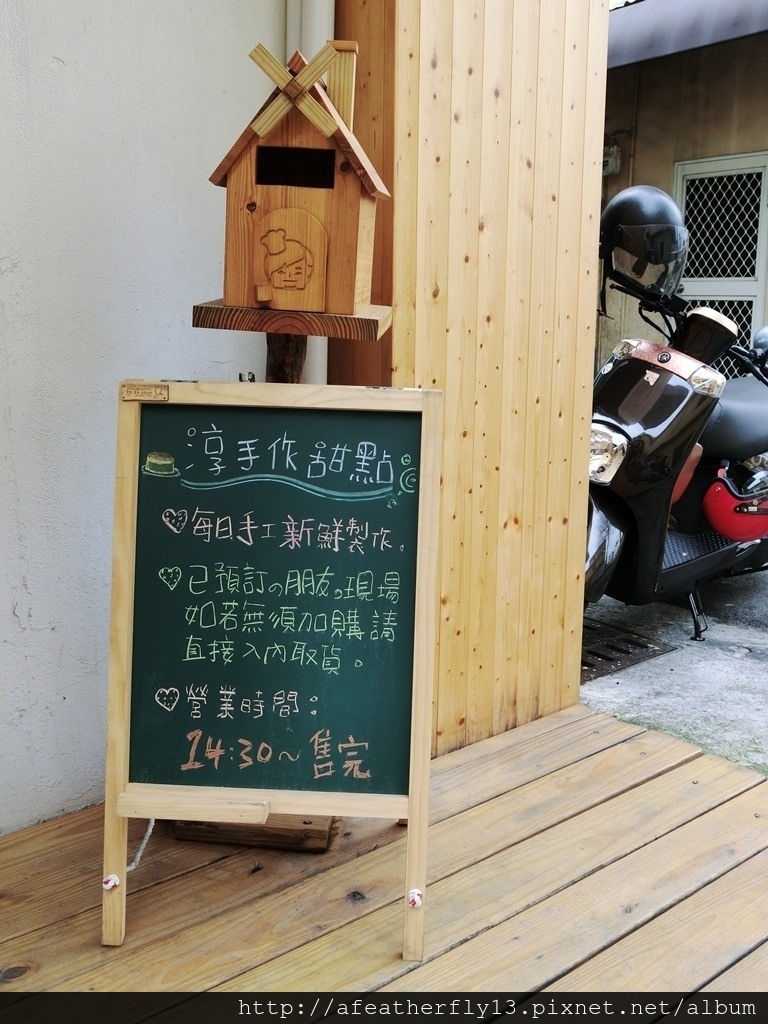 淳手作甜點
每日手工新鮮製作。
已預訂の朋友。現場
如若無須加購請
直接入內取貨。
營業時間:
14:30~售完
http://afeatherfly13.pixnet.net/album